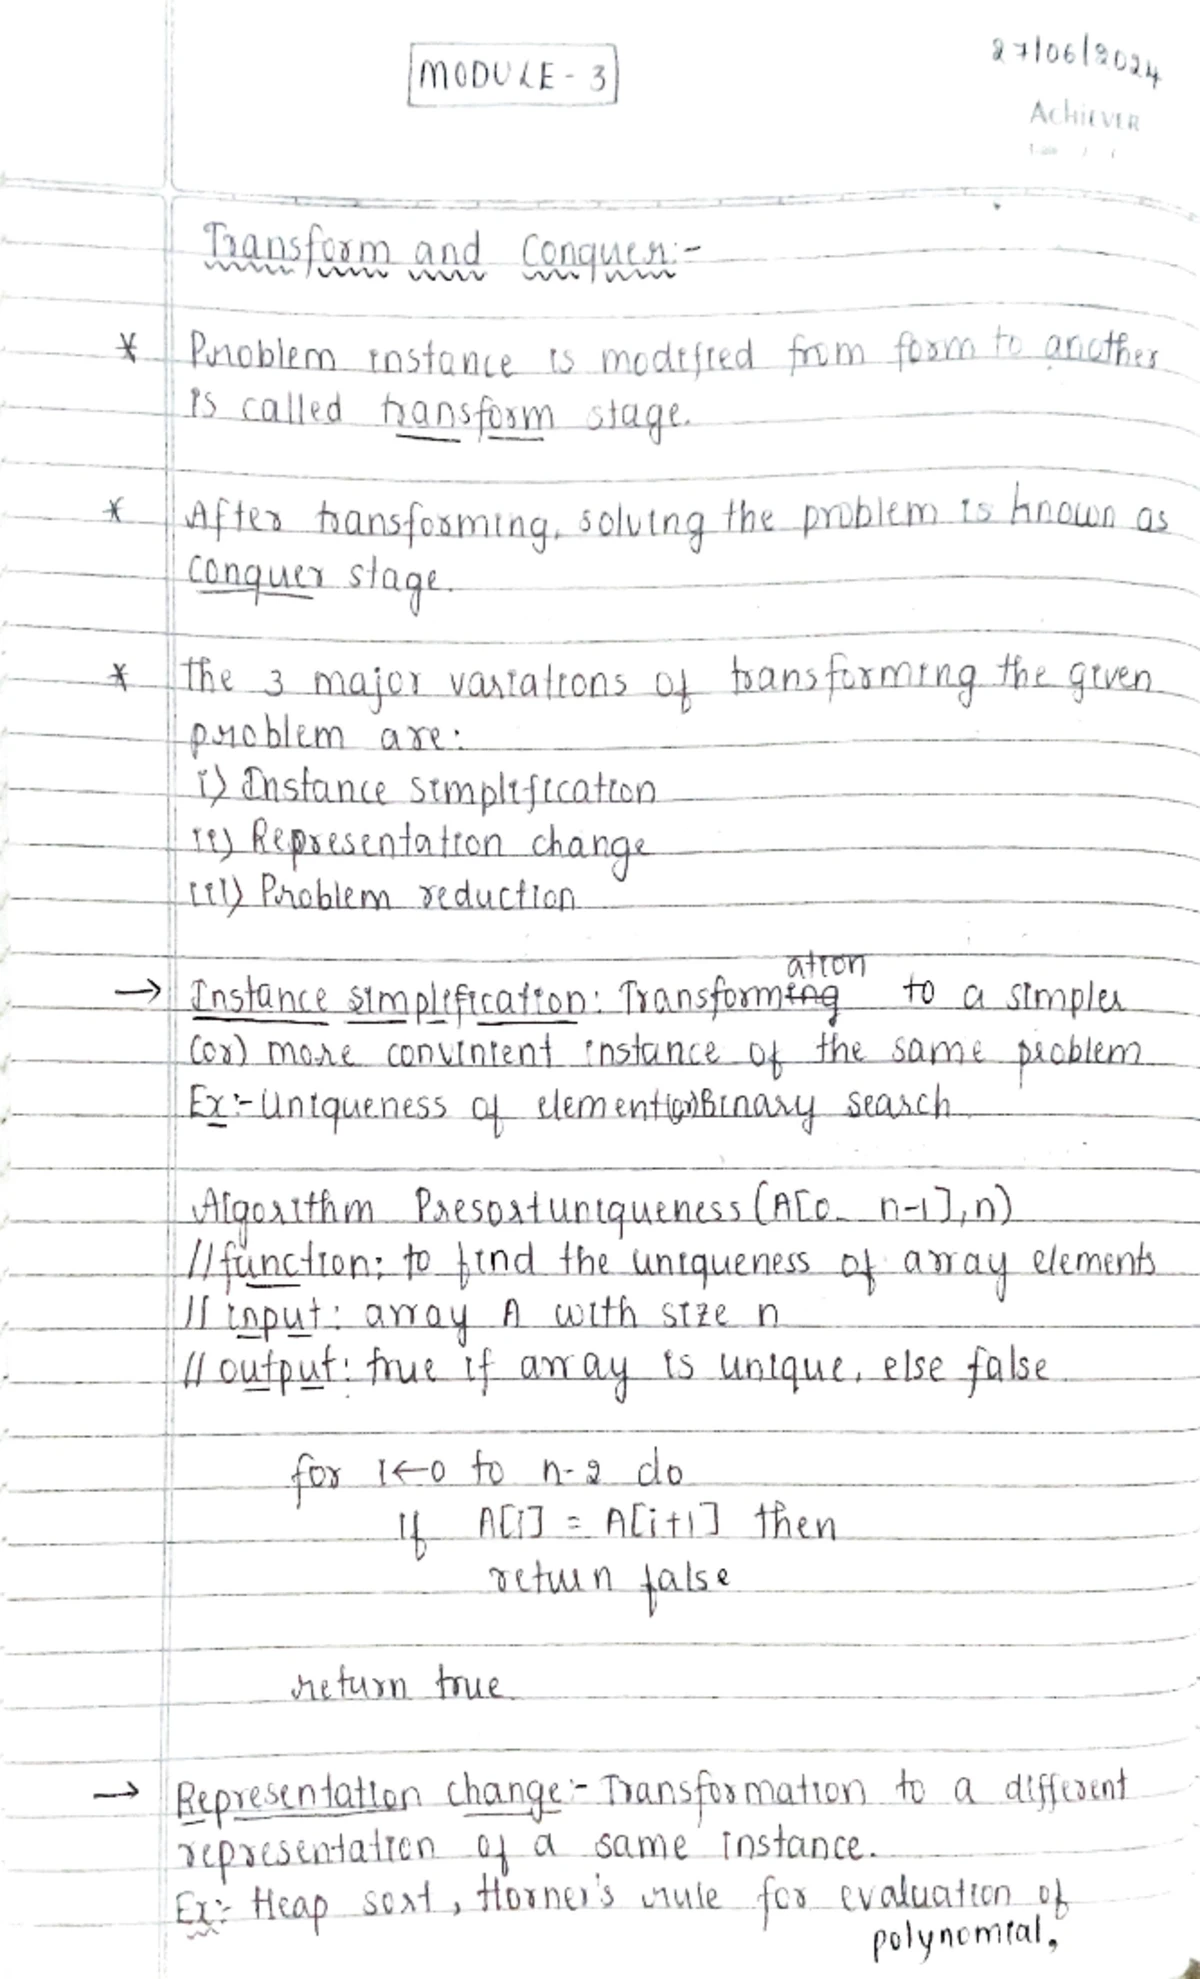 MODULE - 3
27/06/2024
AchiEVER
Transform and Conquer:-
* Problem instance is modified from form to another
is called transform stage.
* After transforming, solving the problem is known as
conquer stage.
* The 3 major variations of transforming the given
problem are:
i) Instance simplification
ii) Representation change
iii) Problem reduction
ation
→ Instance simplification: Transforming to a simpler
(or) more convinient instance of the same problem
Ex:- Uniqueness of element (or) Binary search
Algorithm Presortuniqueness (A[0_ n-1], n)
// function: to find the uniqueness of array elements
// input: array A with size n
// output: true if array is unique, else false.
for i←0 to n-2 do
if A[i] = A[i+1] then
return false
return true
→ Representation change:- Transformation to a different
representation of a same instance.
Ex:- Heap sort, Horner's rule for evaluation of
polynomial,